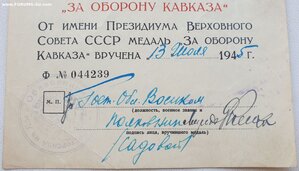 www.FORUMS-SU.com
"ЗА ОБОРОНУ КАВКАЗА"
От имени Президиума Верховного
Совета СССР медаль „За оборону
Кавказа" вручена 13 Июля 1945 г.
Ф № 044239
М. П.
Рост. Обл. Военком
(должность, военное звание и
полковник
подпись лица, вручившего медаль)